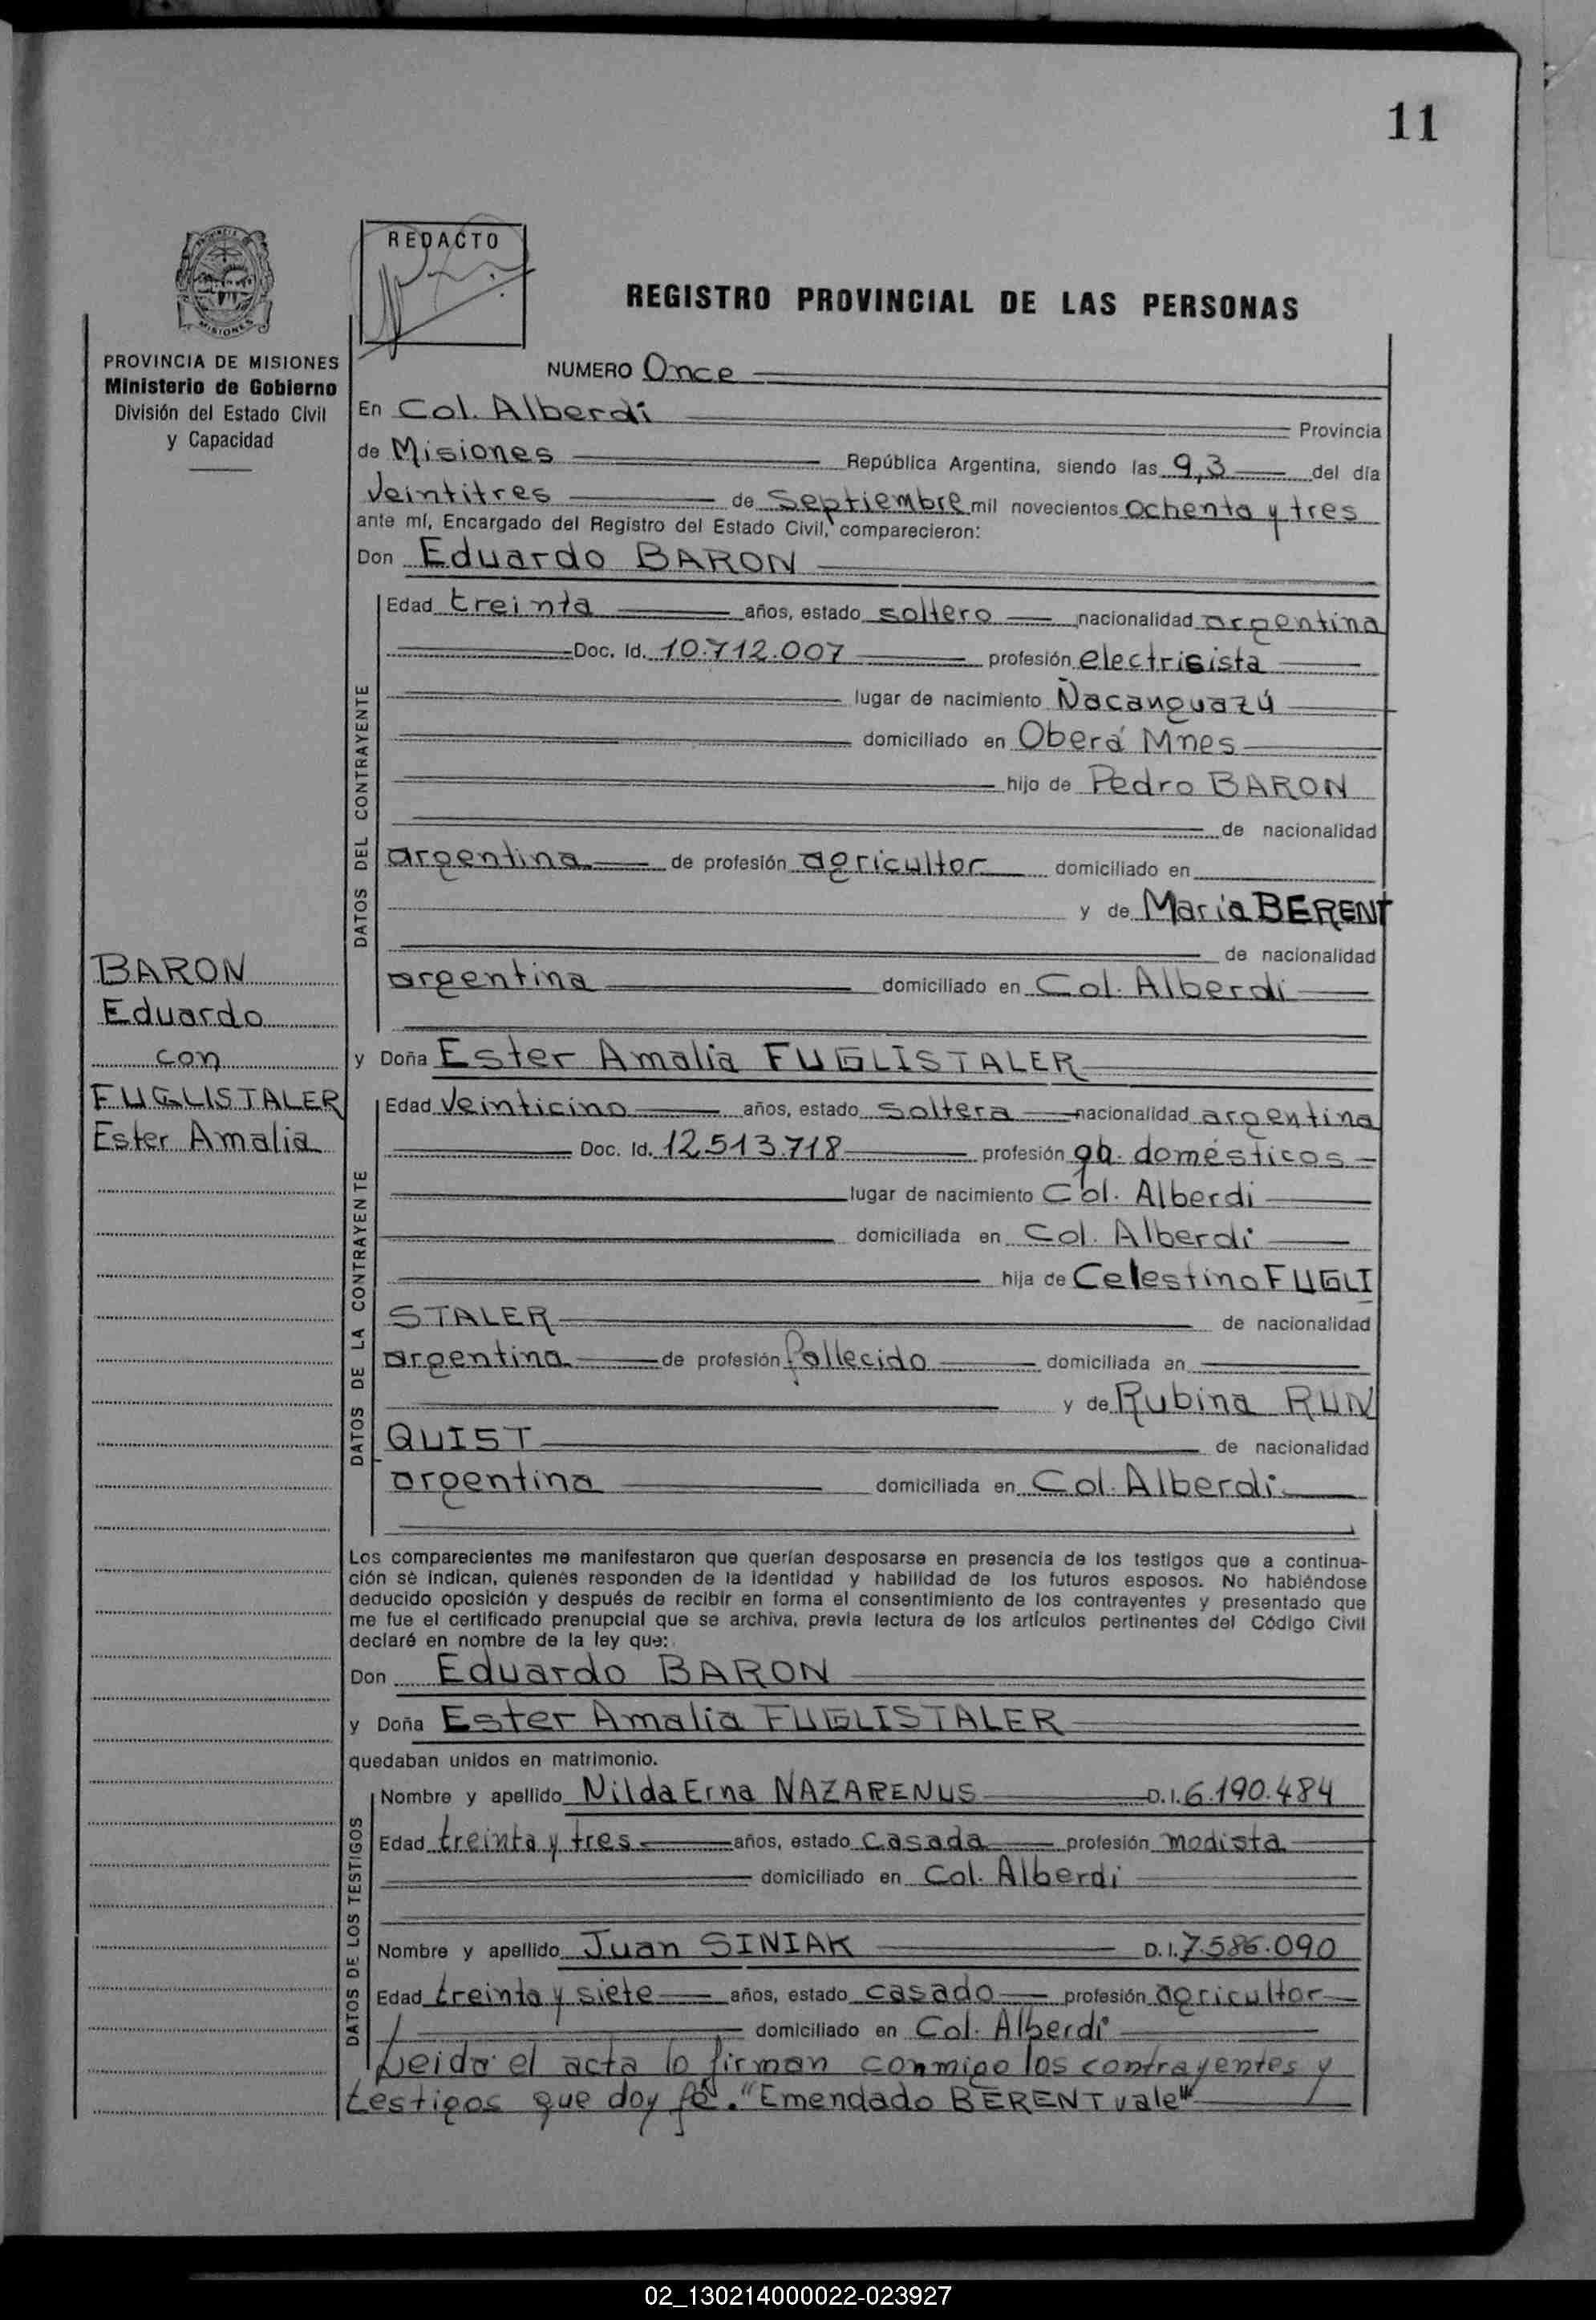 11
REDACTO
REGISTRO PROVINCIAL DE LAS PERSONAS
MISIONES
PROVINCIA DE MISIONES
Ministerio de Gobierno
División del Estado Civil
y Capacidad
BARON
Eduardo
con
FUGLISTALER
Ester Amalia
NUMERO Once
En Col. Alberdi Provincia
de Misiones República Argentina, siendo las 9,3 del día
Veintitres de Septiembre mil novecientos ochenta y tres
ante mí, Encargado del Registro del Estado Civil, comparecieron:
Don Eduardo BARON
DATOS DEL CONTRAYENTE
Edad treinta años, estado soltero nacionalidad argentina
Doc. Id. 10.712.007 profesión electrisista
lugar de nacimiento Ñacanguazú
domiciliado en Oberá Mnes
hijo de Pedro BARON
de nacionalidad
argentina de profesión agricultor domiciliado en
y de María BERENT
de nacionalidad
argentina domiciliado en Col. Alberdi
y Doña Ester Amalia FUGLISTALER
DATOS DE LA CONTRAYENTE
Edad Veinticino años, estado soltera nacionalidad argentina
Doc. Id. 12.513.718 profesión qh. domésticos
lugar de nacimiento Col. Alberdi
domiciliada en Col. Alberdi
hija de Celestino FUGLI
STALER de nacionalidad
argentina de profesión fallecido domiciliada en
y de Rubina RUN
QUIST de nacionalidad
argentina domiciliada en Col. Alberdi
Los comparecientes me manifestaron que querían desposarse en presencia de los testigos que a continua-
ción se indican, quienes responden de la identidad y habilidad de los futuros esposos. No habiéndose
deducido oposición y después de recibir en forma el consentimiento de los contrayentes y presentado que
me fue el certificado prenupcial que se archiva, previa lectura de los artículos pertinentes del Código Civil
declaré en nombre de la ley que:
Don Eduardo BARON
y Doña Ester Amalia FUGLISTALER
quedaban unidos en matrimonio.
DATOS DE LOS TESTIGOS
Nombre y apellido Nilda Erna NAZARENUS D.I. 6.190.484
Edad treinta y tres años, estado casada profesión modista
domiciliado en Col. Alberdi
Nombre y apellido Juan SINIAK D.I. 7.586.090
Edad treinta y siete años, estado casado profesión agricultor
domiciliado en Col. Alberdi
Leida el acta lo firman conmigo los contrayentes y
testigos que doy fé. "Emendado BERENT vale"
02_130214000022-023927